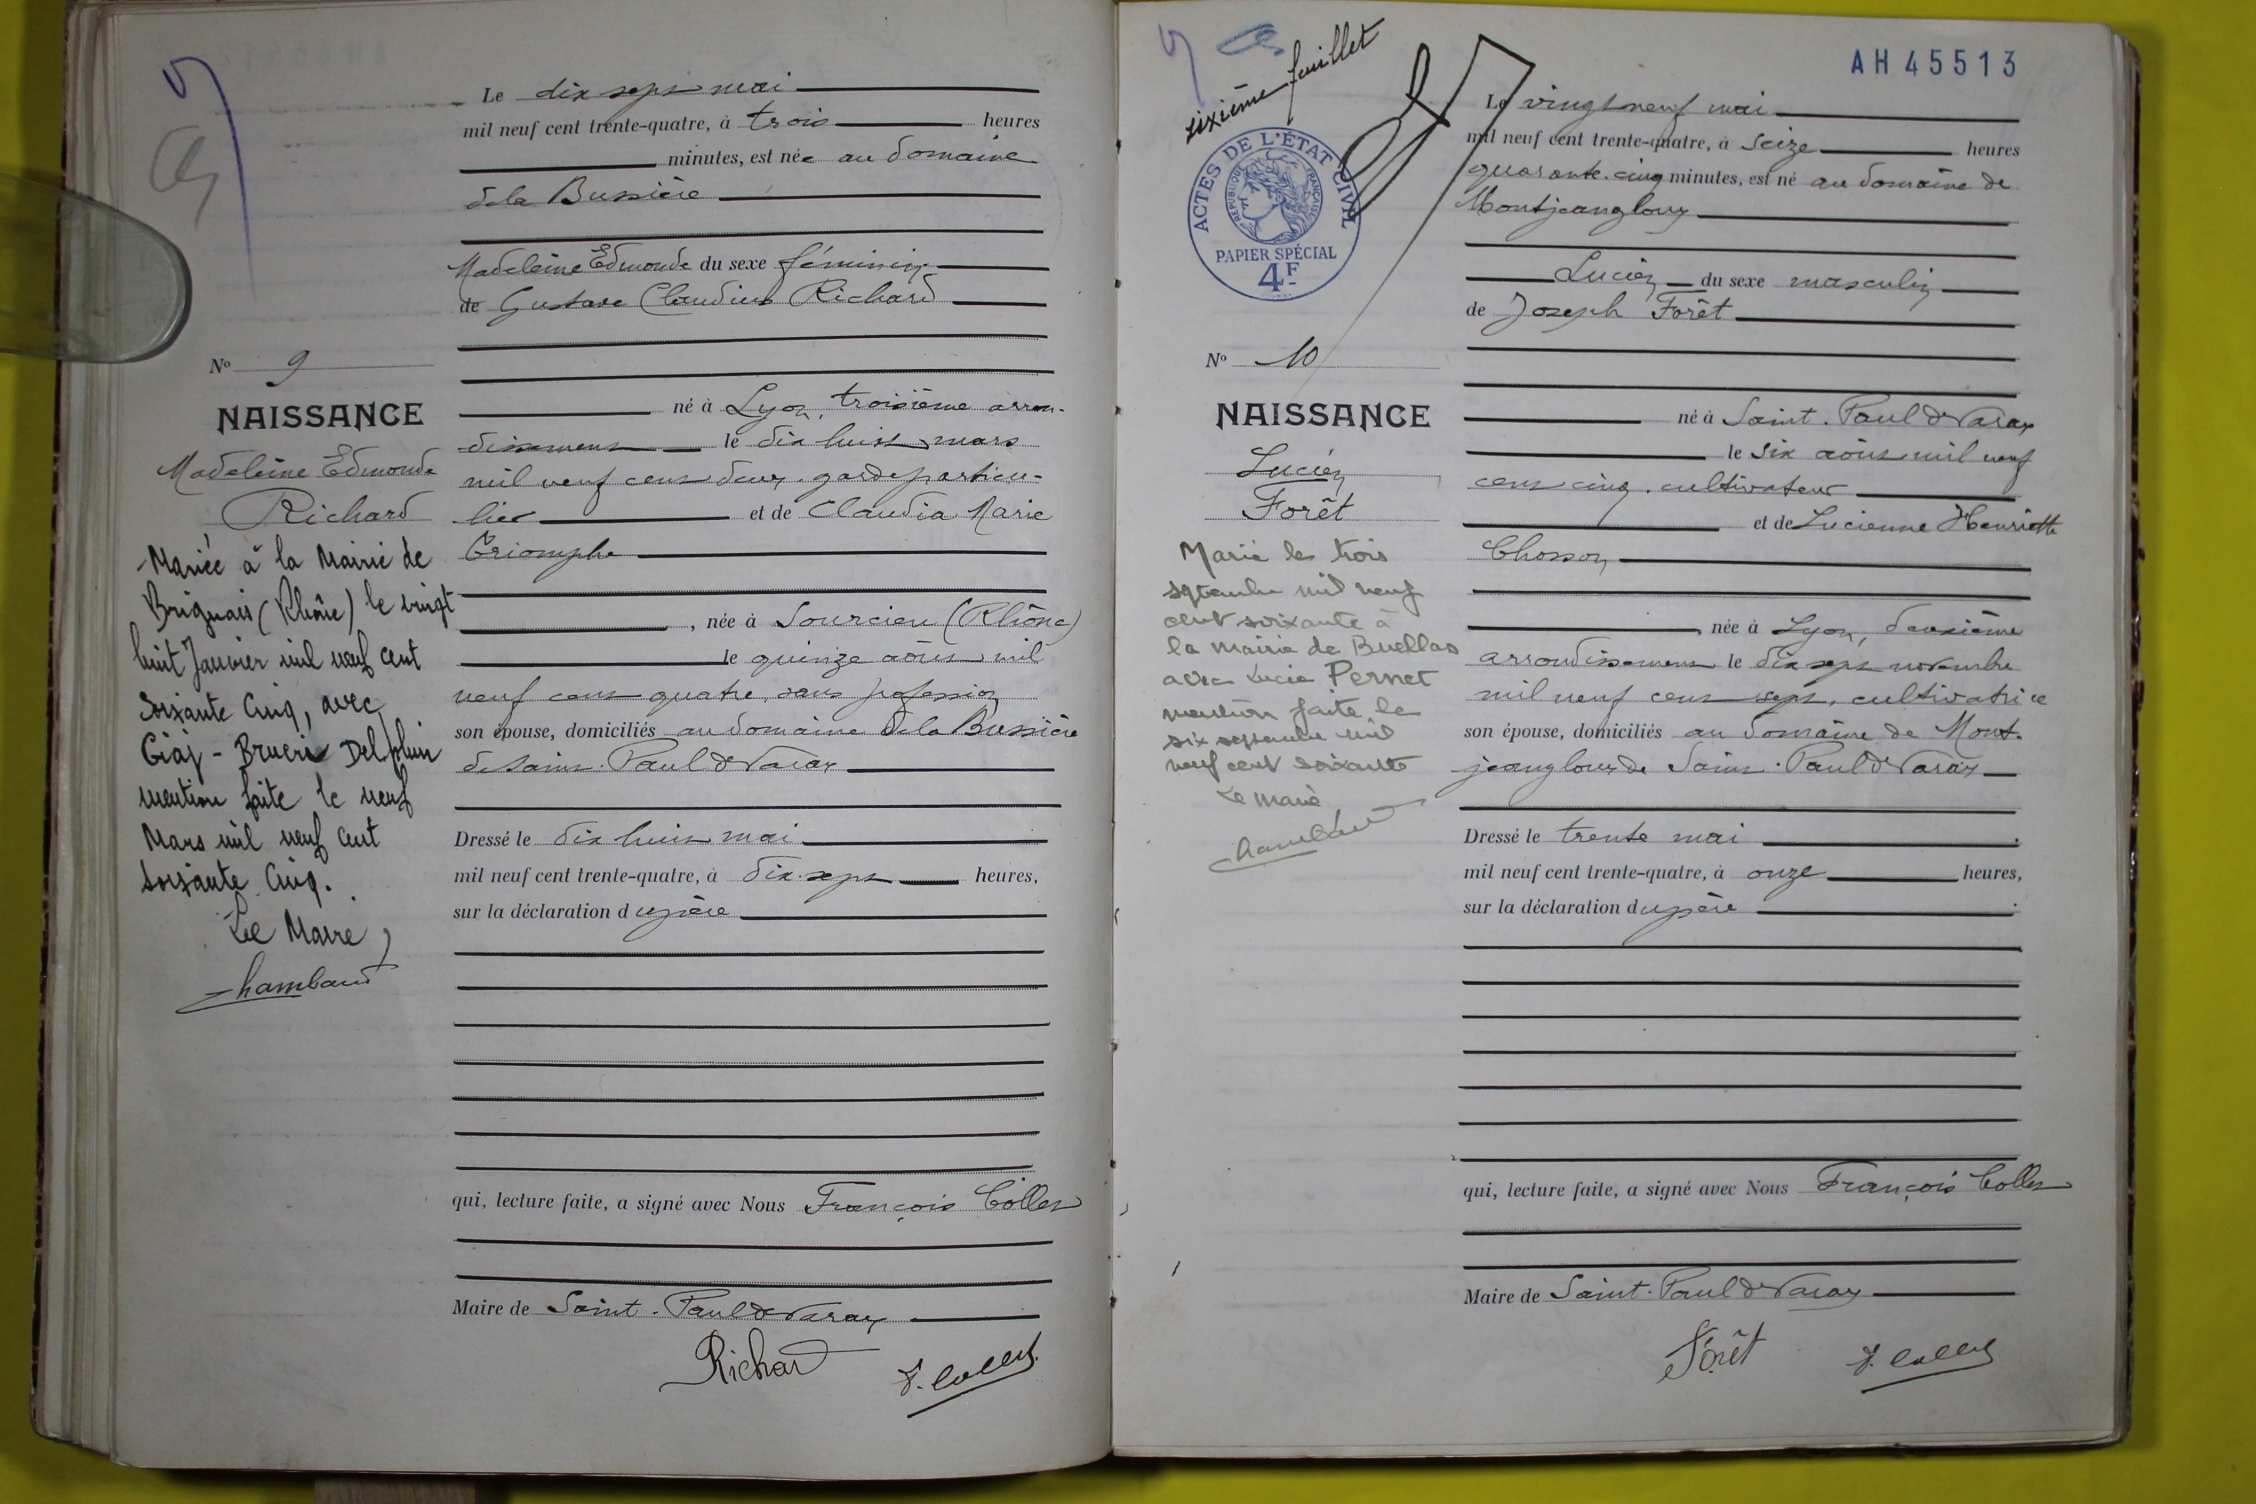 Le dix sept mai
mil neuf cent trente-quatre, à trois heures
minutes, est née au domaine
de la Bussière
Madeleine Edmonde du sexe féminin
de Gustave Claudius Richard
né à Lyon, troisième arron-
dissement le dix huit mars
mil neuf cent deux. garde particu-
lier et de Claudia Marie
Triomphe
, née à Sourcieu (Rhône)
le quinze août mil
neuf cent quatre, sans profession
son épouse, domiciliés au domaine de la Bussière
de Saint-Paul de Varax
Dressé le dix huit mai
mil neuf cent trente-quatre, à dix-sept heures,
sur la déclaration du père
qui, lecture faite, a signé avec Nous François Collet
Maire de Saint-Paul de Varax
Richard F. Collet
No 9
NAISSANCE
Madeleine Edmonde
Richard
Mariée à la Mairie de
Brignais (Rhône) le vingt
huit Janvier mil neuf cent
soixante Cinq, avec
Giaj-Bruerie Delphin
mention faite le neuf
Mars mil neuf cent
soixante Cinq.
Le Maire,
Chambaud
sixième feuillet
AH 45513
ACTES DE L'ÉTAT CIVIL
RÉPUBLIQUE FRANÇAISE
PAPIER SPÉCIAL
4F
No 10
NAISSANCE
Lucien
Forêt
Marié le trois
septembre mil neuf
cent soixante à
la mairie de Buellas
avec Lucie Pernet
mention faite le
six septembre mil
neuf cent soixante
Le Maire
Chambaud
Le vingt neuf mai
mil neuf cent trente-quatre, à seize heures
quarante-cinq minutes, est né au domaine de
Montjeangloux
Lucien du sexe masculin
de Joseph Forêt
né à Saint-Paul de Varax
le six août mil neuf
cent cinq. cultivateur
et de Lucienne Henriette
Chosson
née à Lyon, deuxième
arrondissement le dix sept novembre
mil neuf cent sept, cultivatrice
son épouse, domiciliés au domaine de Mont-
jeangloux de Saint-Paul de Varax
Dressé le trente mai
mil neuf cent trente-quatre, à onze heures,
sur la déclaration du père
qui, lecture faite, a signé avec Nous François Collet
Maire de Saint-Paul de Varax
Forêt F. Collet